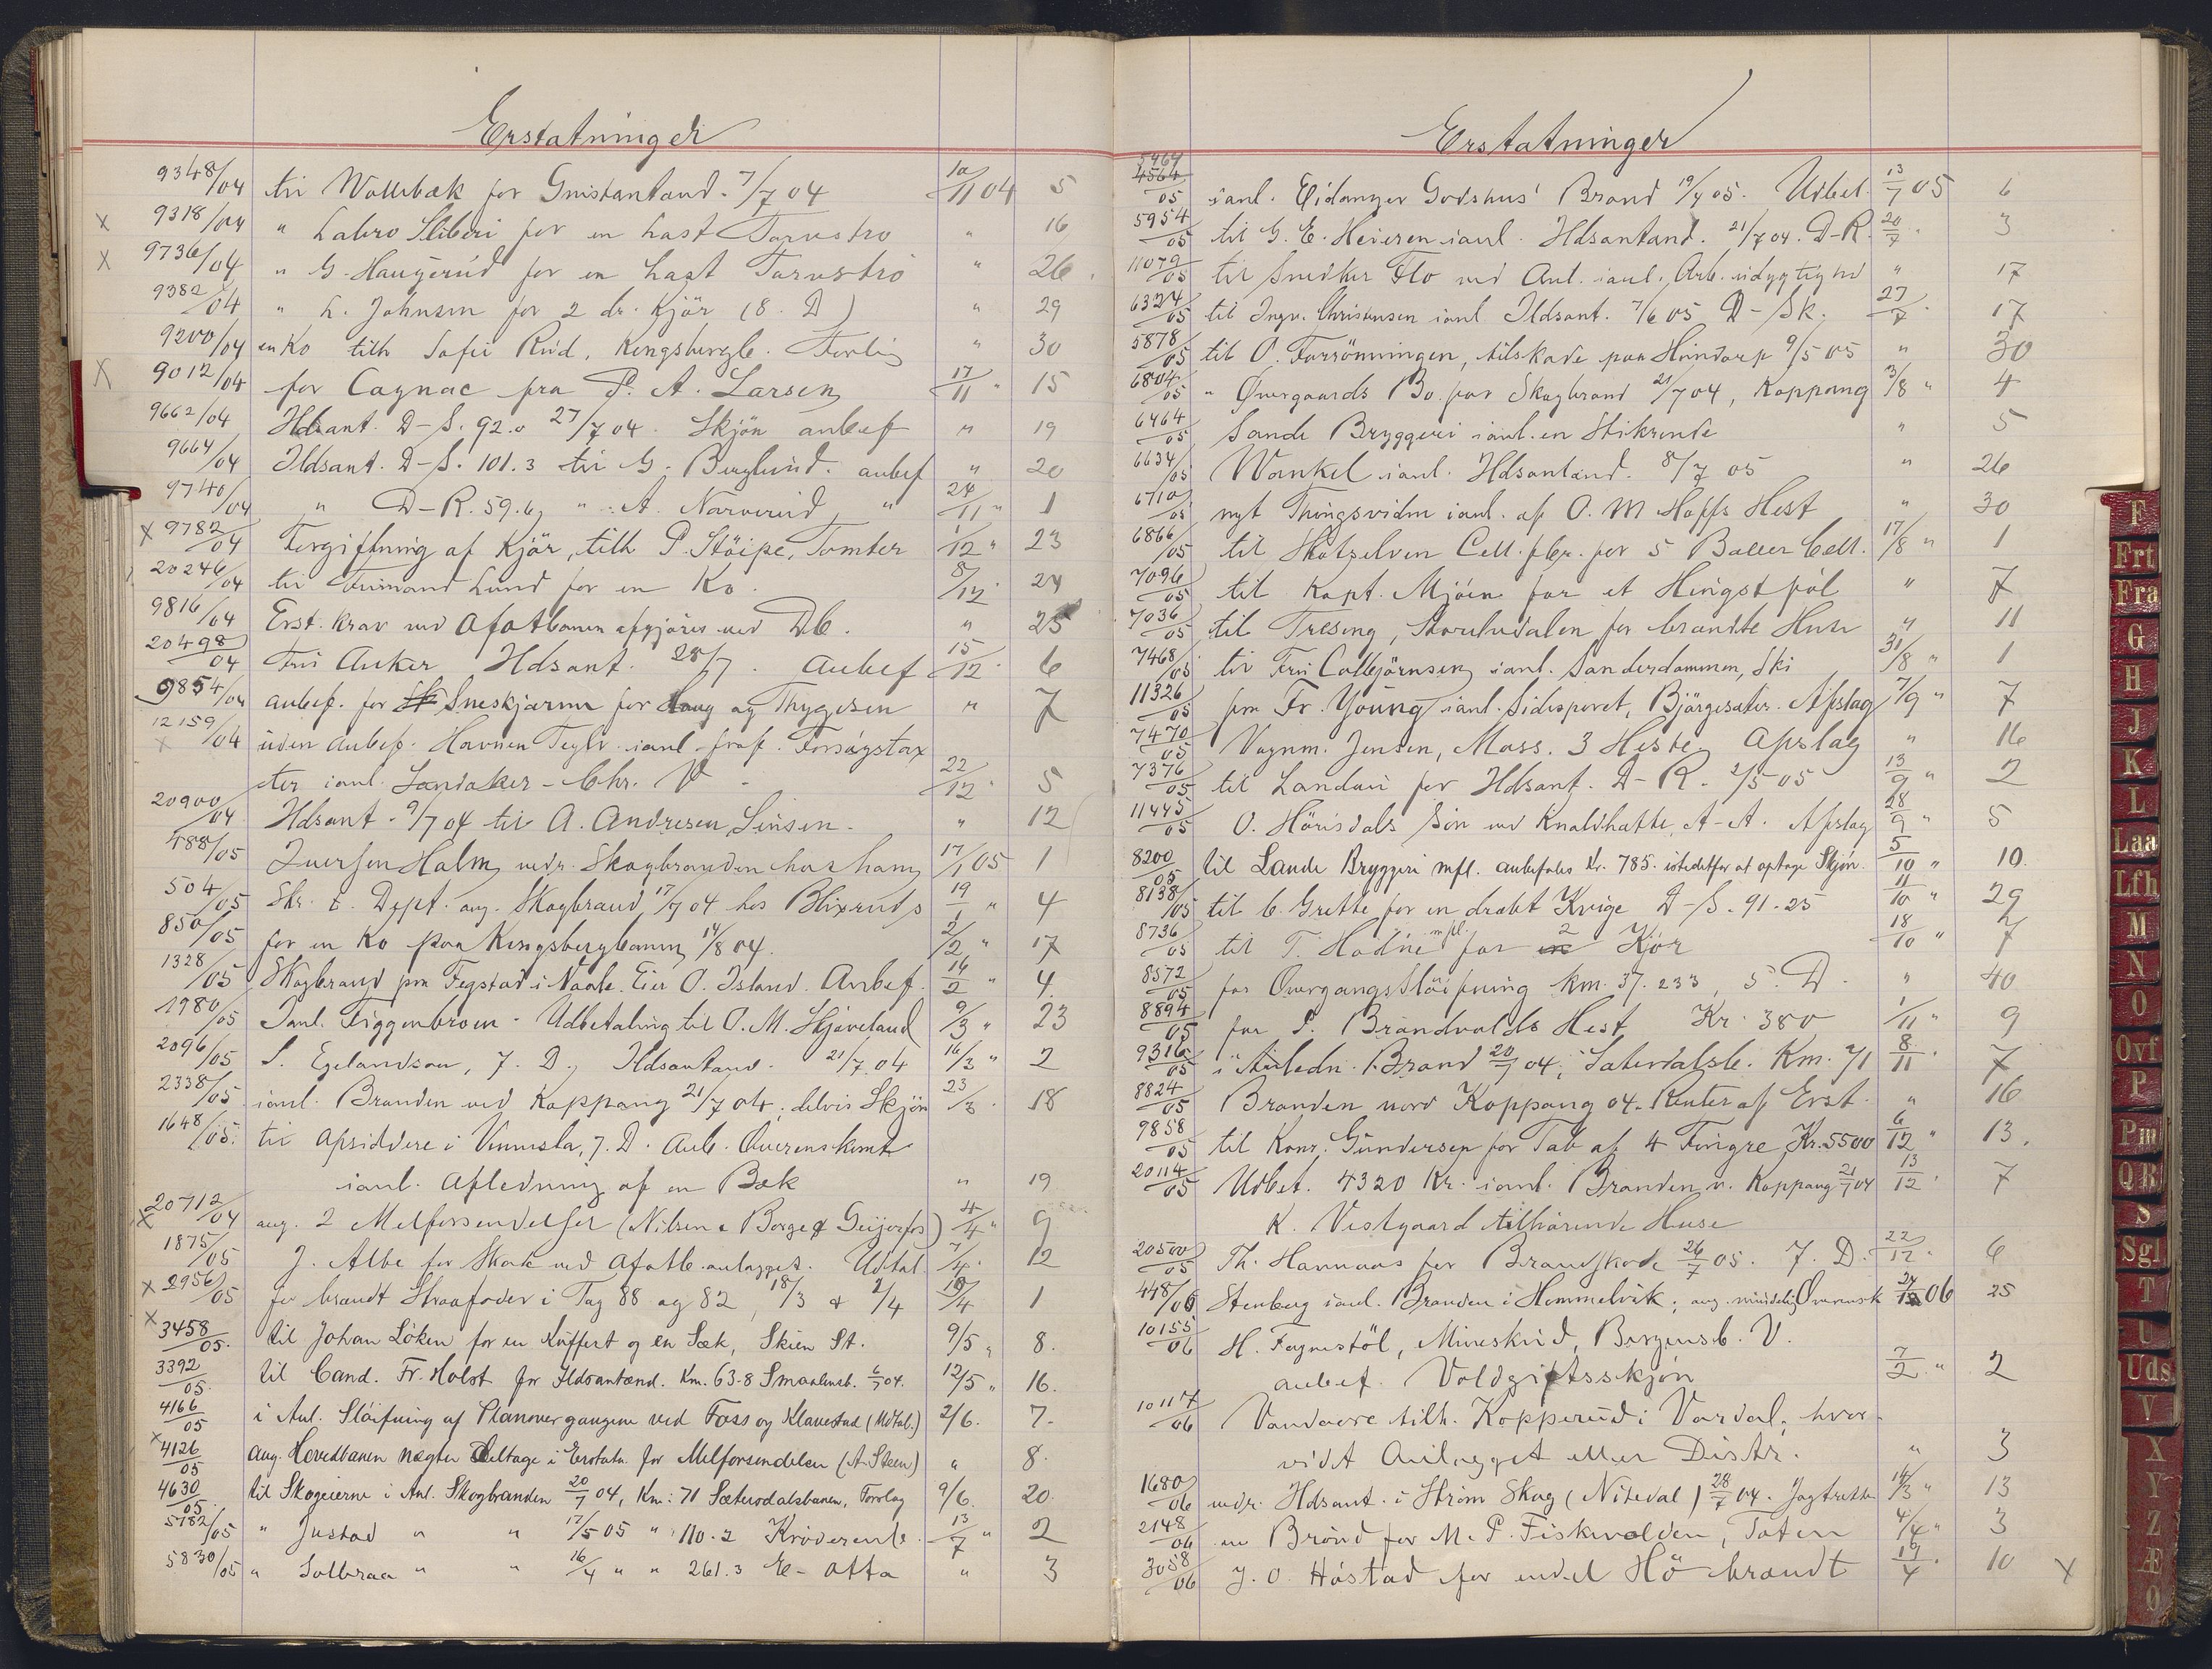 Erstatninger
9348/04 til Wollebæk for Gnistantænd. 7/7 04 10/11 04 5
x 9318/04 " Labro Sliberi for en Last Tørvestrø " 16
x 9736/04 " G. Haugerud for en Last Tørvestrø " 26.
9382/04 " L. Johnsen for 2 dr. Kjör (8. D) " 29
9200/04 en Ko tilh Sofie Rud, Kongsbergb. Forlig " 30
X 9012/04 for Cognac fra P. A. Larsen 17/11 " 15
9662/04 Ildsant. D-S. 92.0 27/7 04. Skjön anbef " 19
9664/04 Ildsant. D-S. 101.3 til G. Berglund. anbef " 20
9740/04 " D-R. 59.6, " A. Narverud " 24/11 " 1
x 9782/04 Forgiftning af Kjör, tilh P. Stöipe, Tomter 1/12 " 23
20246/04 til Lund for en Ko. 8/12 24
9816/04 Erst. krav ved Ofotbanen afgjöres ved Db. " 25
20498/04 Anker Ildsant. 28/7. Anbef 15/12 6
9854/04 anbef. for Sneskjærme for Haug og Thygesen " 7
12159/04 x uden anbef. Havnen Teglv. ianl. Forsögstax
ter ianl. Sandaker - Chr. V 22/12 5
20900/04 Ildsant. 9/7 04 til A. Andresen, - " 12
488/05 Iversen Holm vedr. Skogbranden hos ham 17/1 05 1
504/05 Skr. t. Dept. ang. Skogbrand 17/7 04 hos Blixrud 19/1 " 4
850/05 for en Ko paa Kongsbergbanen 14/8 04. 2/2 " 17
1328/05 Skogbrand paa Fegstad i Vaale. Eier O. Island. Anbef. 16/2 " 4.
1980/05 Ianl. Figgenbroen - Udbetaling til O. M. Skjæveland 9/3 " 23
2096/05 S. Egelandsaa, 7. D., Ildsantænd. 21/7 04 16/3 " 2
2338/05 ianl. Branden ved Koppang 21/7 04, delvis Skjön 23/3. 18
1648/05. til Opsiddere i Vennesla, 7. D. Anb. Overenskomst
ianl. Afledning af en Bæk " 19
x 20712/04 ang. 2 Melforsendelser (Nilsen & Borge & Geijerfos) 4/4 " 9
1875/05 J. Albe for Skade ved Ofotb. anlægget. Udtal. 7/4. 12
x 2956/05 for brændt Straafoder i Tog 88 og 82, 18/3 & 2/4 13/4 1
x 3458/05. til Johan Löken for en Kuffert og en Sæk, Skien St. 9/5 " 8.
3392/05. til Cand. Fr. Holst for Ildsantænd. Km. 63.8 Smaalensb. 6/7 04. 12/5 " 16.
4166/05 i Anl. Slöifning af Planovergangene ved Foss og Klavestad (Udtal.) 2/6. 7.
x 4126/05 ang. Hovedbanen nægter Deltage i Erstatn. for Melforsendelser (A. Steen) " 8.
4630/05. til Skogeierne i Anl. Skogbranden 20/7 04, Km: 71 Sætersdalsbanen, Forslag 9/6. 20.
5182/05 " Justad " " 17/5 05 " 110.2 Kröderenb. 13/7 " 2
5830/05 " Solbraa " " 16/4 " " 261.3 E - Otta " 3
Erstatninger
5464 4564/05 ianl. Eidanger Godshus' Brand 19/4 05. Udbet. 13/7 05 6
5954/05 til G. E. Heieren ianl. Ildsantand. 21/7 04. D-R. 20/7. 3
11079/05 til Snedker Flo ved Anl. ianl. Arb. udygtighed " 17
6324/05 til Ingv. Christensen ianl Ildsant. 7/6 05 D - Sk. 27/7. 17
5878/05 til O. Forrönningen, tilskade paa Hvindorp 9/5 05 " 30
6804/05 " Övergaards Bo. for Skogbrand 21/7 04, Koppang 3/8 " 4
6464/05 Sande Bryggeri ianl. en Stikrende " 5
6634/05 Wankel ianl. Ildsantænd. 8/7 05 " 26
6710/05 nyt Thingsvidne ianl. af O. M. Hoffs Hest " 30
6866/05 til Skotselven Cell. fbr. for 5 Baller Cell. 17/8 " 1
7096/05 til Kapt. Mjöen for et Hingstföl " 7
7036/05 til Treseng, Storelvdalen for brændte Huse " 11
7468/05 til ianl. Sanderdammen, Ski 31/8 " 1
11326/05 fra Fr. Young ianl. Sidesporet, Bjørgesæter. Afslag 7/9 " 7
7470/05 Vognm. Jensen, Moss. 3 Heste, Afslag " 16
7376/05 til Landau for Ildsant. D-R. 2/5 05 13/9 " 2
11445/05 O. Hörisdals Sön ved Knaldhætte, A-A. Afslag 28/9 " 5
8200/05 til Sande Bryggeri mfl. anbefales Kr. 785. istedetfor at optage Skjön. 5/10 " 10.
8138/05 til C. Grette for en dræbt Kvige D-S. 91.25 11/10 " 29
8736/05 til T. Hodne mfl. for en 2 Kjör 18/10 " 7
8572/05 for Overgangs Slöifning km. 37.233, 5. D. " 40
8894/05 for P. Brandvolds Hest Kr. 380 1/11 " 9
9316/05 i Anledn. Brand 20/7 04, Sætersdalsb. Km. 71 8/11. 7
8824/05 Branden nord Koppang 04. Renter af Erst. " 16
9858/05 til Konr. Gundersen for Tab af 4 Fingre Kr. 5500 6/12 " 13.
20114/05 Udbet. 4320 Kr. ianl. Branden v. Koppang 21/7 04 13/12 " 7
K. Vestgaard tilhörende Huse
20500/05 Th. Hannaas for Brandskade 26/7 05. 7. D. 22/12. 6
448/06 Stenberg ianl. Branden i Hommelvik, ang. mindelig Overensk 24/1 06 25
10155/06 H. Fagnestöl, Bergensb. V.
anbef. Voldgiftsskjön 7/2 " 2
10117/06 Vandaare tilh. Kopperud i Vardal, hvor-
vidt Anlægget eller Distr. " 3
1680/06 vedr. Ildsant. i Ström Skog (Nitedal) 28/7 04. Jagtrette 14/3 " 13
2148/06 en Brönd for M. P. Fiskvolden, Toten 4/4 " 3
3058/06 J. O. Håstad for endel Hö brændt 19/4. 10 x
F
Frt
Fra
G
H
J
K
L
Laa
Lfh
M
N
O
Ovf
P
Pm
QR
S
Sgl
T
U
Uds
V
X
Y
Z
Æ
Ø